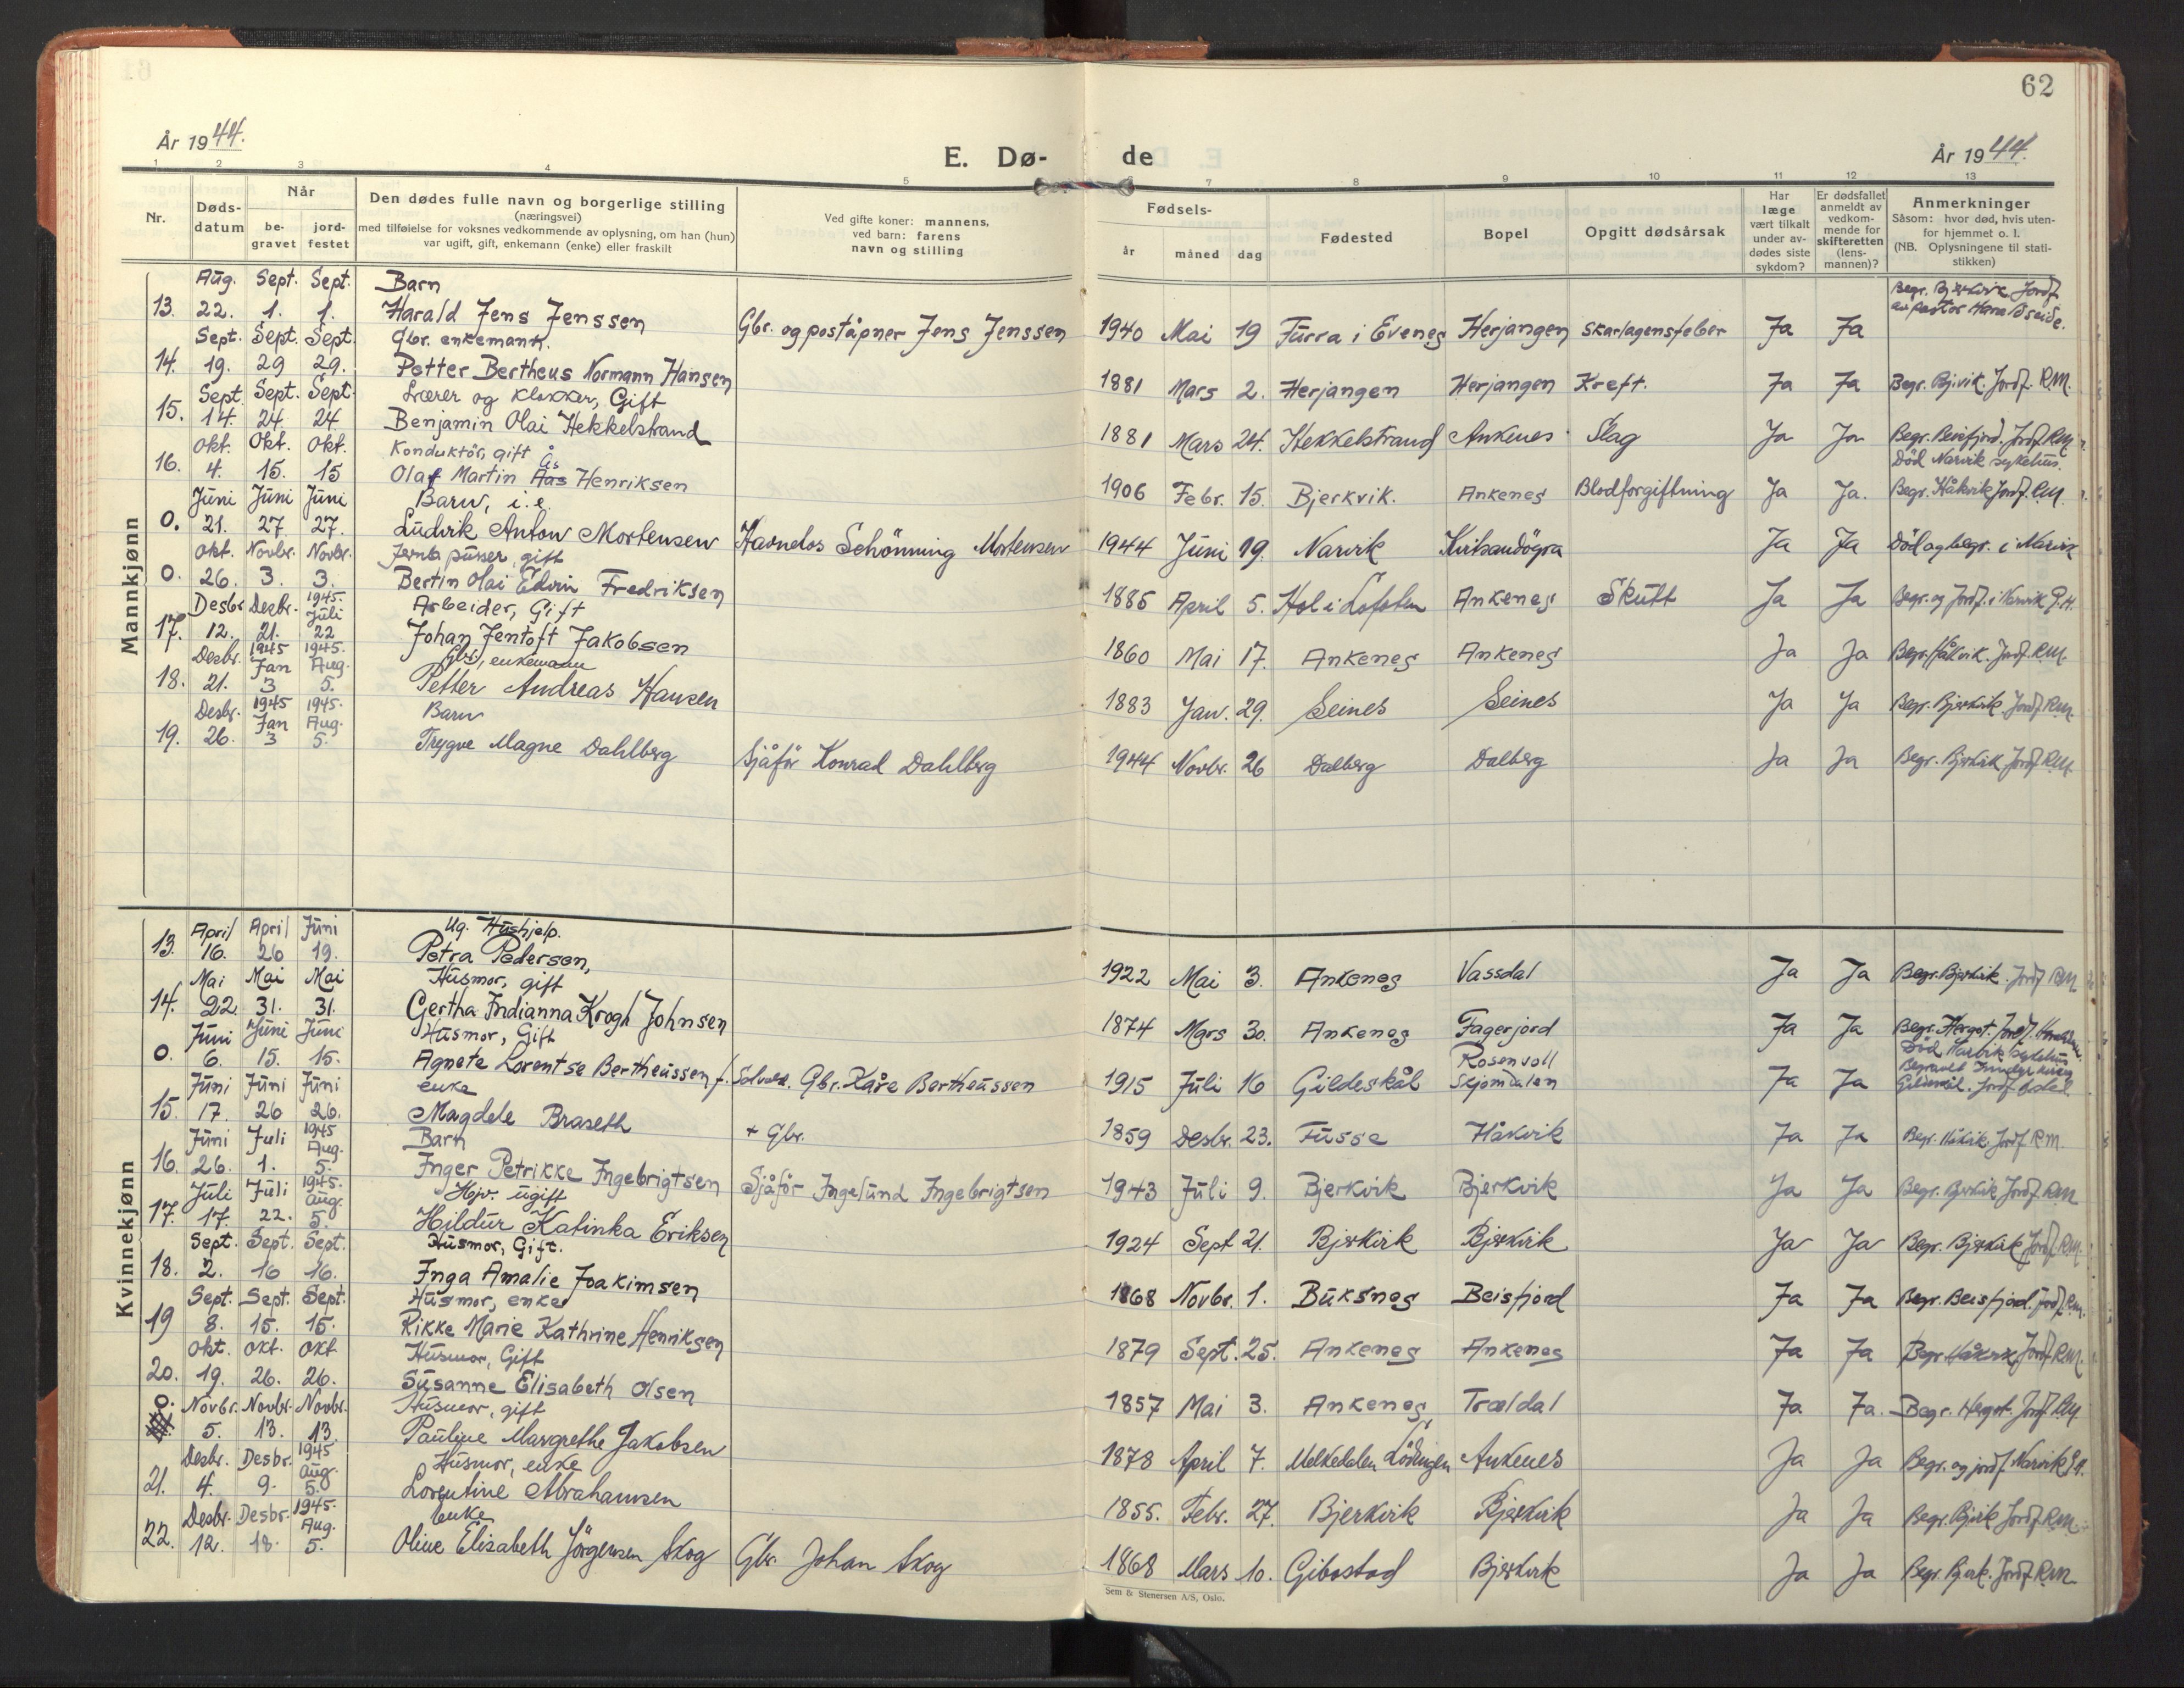 62
År 1944.
E. Dø-
de
År 1944.
1 2 3 4 5 6 7 8 9 10 11 12 13
Nr.
Døds-
datum
Når
be-
gravet
jord-
festet
Den dødes fulle navn og borgerlige stilling
(næringsvei)
med tilføielse for voksnes vedkommende av oplysning, om han (hun)
var ugift, gift, enkemann (enke) eller fraskilt
Ved gifte koner: mannens,
ved barn: farens
navn og stilling
Fødsels-
år
måned
dag
Fødested
Bopel
Opgitt dødsårsak
Har
læge
vært tilkalt
under av-
dødes siste
sykdom?
Er dødsfallet
anmeldt av
vedkom-
mende for
skifteretten
(lens-
mannen)?
Anmerkninger
Såsom: hvor død, hvis uten-
for hjemmet o. l.
(NB. Oplysningene til stati-
stikken)
Mannkjønn
Aug. Sept. Sept. Barn
Begr. Bjerkvik Jordf.
13. 22. 1. 1. Harald Jens Jenssen Gbr. og poståpner Jens Jenssen 1940 Mai 19 Furra i Evenes Herjangen Skarlagensfeber Ja Ja av pastor
Sept. Sept. Sept. Gbr. enkemann.
14. 19. 29 29. Petter Bertheus Normann Hansen 1881 Mars 2. Herjangen Herjangen Kreft. Ja Ja Begr. Bjvik. Jordf. R.M.
Sept. Sept. Sept. Lærer og klokker, Gift
15. 14. 24. 24. Benjamin Olai Hekkelstrand 1881 Mars 24. Hekkelstrand Ankenes Slag Ja Ja Begr. Beisfjord. Jordf. R.M.
Okt. Okt. Okt. Konduktör, gift Ås
Död Narvik sykehus.
16. 4. 15. 15 Olaf Martin Aas Henriksen 1906 Febr. 15. Bjerkvik. Ankenes Blodforgiftning Ja Ja. Begr. Håkvik Jordf. R.M.
Juni Juni Juni Barn, i.e.
0. 21. 27 27. Ludvik Anton Mortensen Schönning Mortensen 1944 Juni 19. Narvik Ja Ja Död og begr. i Narvik
Okt. Novbr. Novbr. pusser, gift
0. 26. 3. 3. Bertin Olai Edvin Fredriksen 1885 April 5. Hol i Lofoten Ankenes Skutt Ja Ja Begr. og Jordf. i Narvik G.H.
Desbr Desbr. 1945. Juli Arbeider, Gift
17. 12. 21. 22 Johan Jentoft Jakobsen 1860 Mai 17. Ankenes Ankenes Ja Ja Begr. Håkvik. Jordf. R.M.
Desbr. 1945 Jan 1945. Aug. Gbr, enkemann
18. 21. 3 5. Petter Andreas Hansen 1883 Jan. 29. Seines Seines Ja Ja Begr. Bjerkvik. Jordf. R.M.
Desbr. 1945 Jan 1945. Aug. Barn
19. 26. 3 5. Trygve Magne Dahlberg Sjåför Konrad Dahlberg 1944 Novbr. 26 Dalberg Dalberg Ja Ja Begr. Bjerkvik Jordf. R.M.
Kvinnekjønn
April April Juni Ug. Hushjelp.
13. 16. 26 19. Petra Pedersen, 1922 Mai 3. Ankenes Vassdal Ja Ja Begr. Bjerkvik. Jordf R.M
Mai Mai Mai Husmor, gift
14. 22. 31. 31. Gertha Indianna Krogh Johnsen 1874 Mars 30. Ankenes Fagerjord Ja Ja Begr. Hergot. Jordf.
Juni Juni Juni Husmor, Gift
Rosenvoll
Död Narvik sykehus
0. 6. 15. 15. Agnete Lorentse Bertheussen f. Gbr. Kåre Bertheussen 1915 Juli 16 Gildeskål Skjomdalen Ja Ja Begravet
Gildeskål. Jordf.
Juni Juni Juni enke
15. 17. 26 26. Magdele Braseth + Gbr. 1859 Desbr. 23. Fusse Håkvik Ja Ja Begr. Håkvik. Jordf R.M.
Juni Juli 1945 Aug. Barn
16. 26. 1. 5. Inger Petrikke Ingebrigtsen Sjåför Ingebrigtsen 1943 Juli 9. Bjerkvik Bjerkvik Ja Ja Begr. Bjerkvik Jordf. R.M
Juli Juli 1945. Aug. Hjv. ugift
17. 17. 22. 5. Hildur Katinka Eriksen 1924 Sept 21. Bjerkvik Bjerkvik Ja Ja Begr. Bjerkvik Jordf. R.M.
Sept. Sept. Sept. Husmor, Gift.
18. 2. 16 16. Inga Amalie Joakimsen 1868 Novbr. 1. Buksnes Beisfjord Ja Ja Begr. Beisfjord. Jordf. R.M.
Sept. Sept. Sept. Husmor, enke
19 8. 15. 15. Rikke Marie Kathrine Henriksen 1879 Sept. 25. Ankenes Ankenes Ja Ja Begr. Håkvik Jordf. R.M.
Okt. Okt. Okt Husmor, Gift
20. 19. 26. 26. Susanne Elisabeth Olsen 1857 Mai 3. Ankenes Trældal Ja Ja. Begr. Hergot. Jordf. R.M.
Novbr. Novbr. Novbr. Husmor, gift
0. 5. 13. 13. Pauline Margrethe Jakobsen 1878 April 7. Melkedalen i Lödingen Ankenes Ja Ja Begr. og jordf. Narvik G.H.
Desbr. Desbr. 1945 Aug. Husmor, enke
21. 4. 9. 5. Lorentine Abrahamsen 1855. Febr. 27. Bjerkvik Bjerkvik Ja Ja Begr. Bjvik Jordf. R.M.
Desbr. Desbr. 1945. Aug. Enke
22. 12. 18. 5. Oline Elisabeth Jörgensen Skog Gbr. Johan Skog 1868 Mars 10. Gibostad Bjerkvik Ja Ja Begr. Bjerk. Jordf. R.M.
Sem & Stenersen A/S, Oslo.